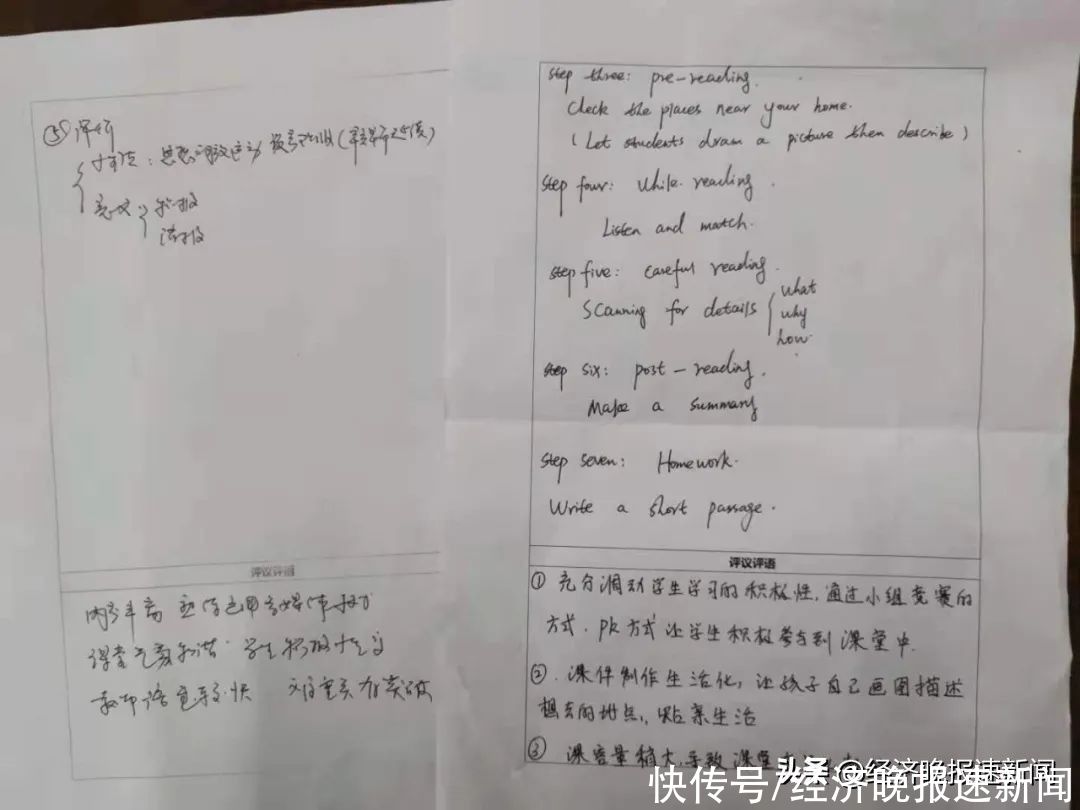 ⑤评析
思想解放运动
意义
积极
消极
评议评语
内容丰富
课堂气氛和谐 学生积极
教师语言 快
step three: pre-reading.
Check the places near your home.
(Let students draw a picture then describe)
step four: While-reading.
Listen and match.
step five: careful reading.
Scanning for details
what
why
how.
step six: post-reading.
Make a summary
step seven: Homework.
Write a short passage.
评议评语
① 充分调动学生学习的积极性,通过小组竞赛的
方式. pk方式让学生积极参与到课堂中.
②. 课件制作生活化,让孩子自己画图描述
想去的地点,贴亲生活
③ 课容量稍大,导致课堂
头条 @经济晚报速新闻
快传号/经济晚报速新闻